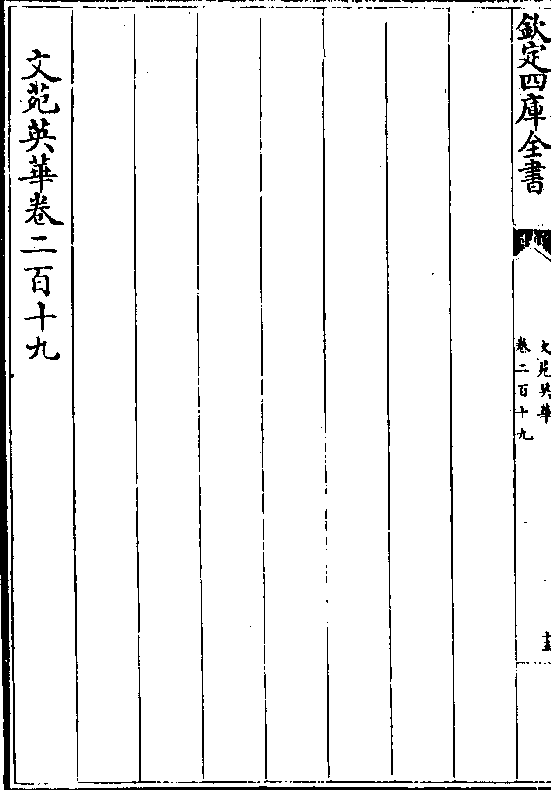 欽定四庫全書
文苑英華
卷二百十九
文苑英華卷二百十九